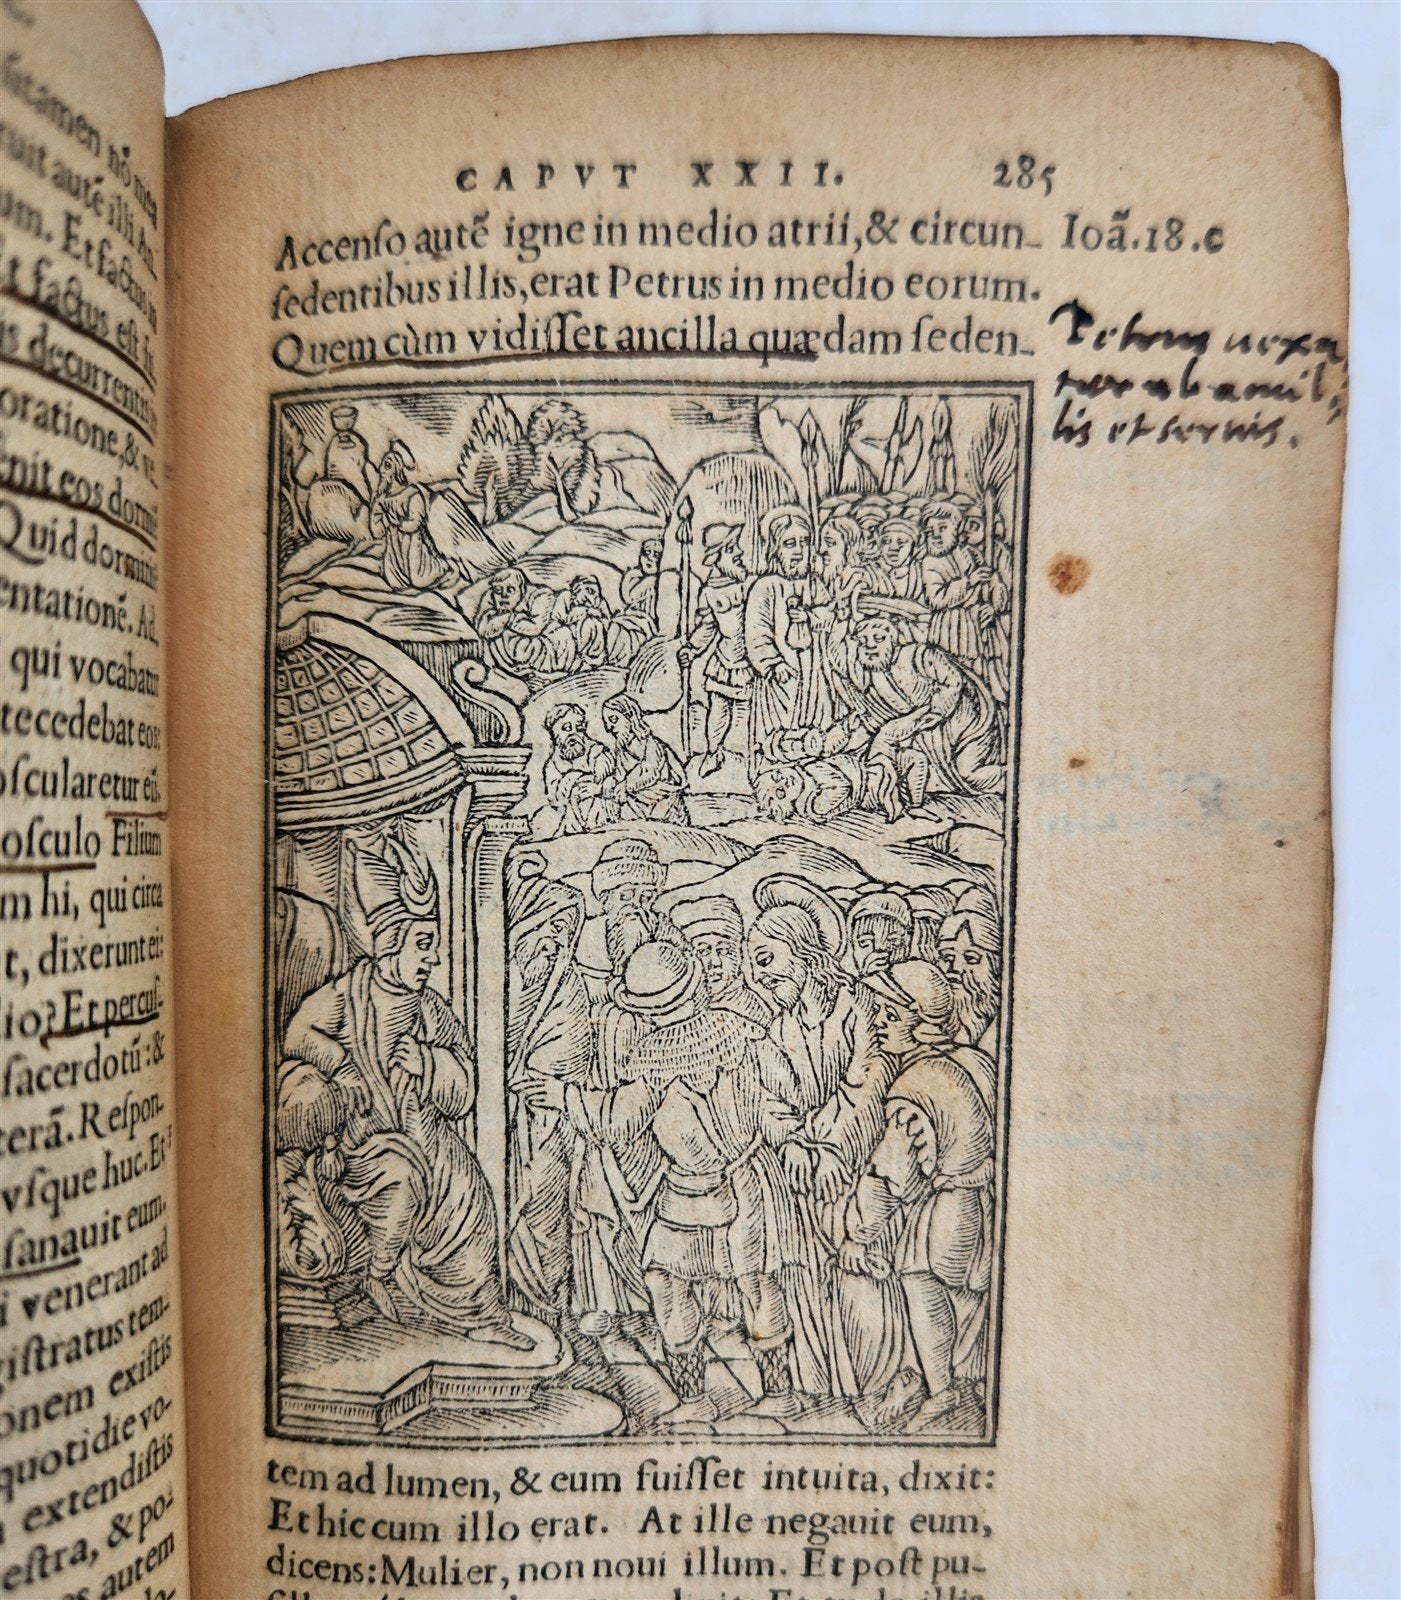 utamen nõ mea
ruit autē illi An-
um. Et factus in
Et factus est su
is decurrentis in
oratione, & ve-
ēnit eos dormiē
Quid dormitis
entationē. Ad
qui vocabatur
tecedebat eos:
oſcularetur eū.
oſculo Filium
m hi, qui circa
t, dixerunt ei:
io? Et percuſ-
ſacerdotū: &
terā. Reſpon-
vſque huc. Et
ſanauit eum.
i venerant ad
giſtratus tem-
onem exiſtis
quotidie vo-
extendiſtis
eſtra, & po-
autem
CAPVT XXII. 285
Accenſo autē igne in medio atrii, & circun-
ſedentibus illis, erat Petrus in medio eorum.
Quem cùm vidiſſet ancilla quædam ſeden-
Ioã. 18. c
Petrum uexa
tur ab ancil
lis et seruis.
tem ad lumen, & eum fuiſſet intuita, dixit:
Et hic cum illo erat. At ille negauit eum,
dicens: Mulier, non noui illum. Et poſt pu-